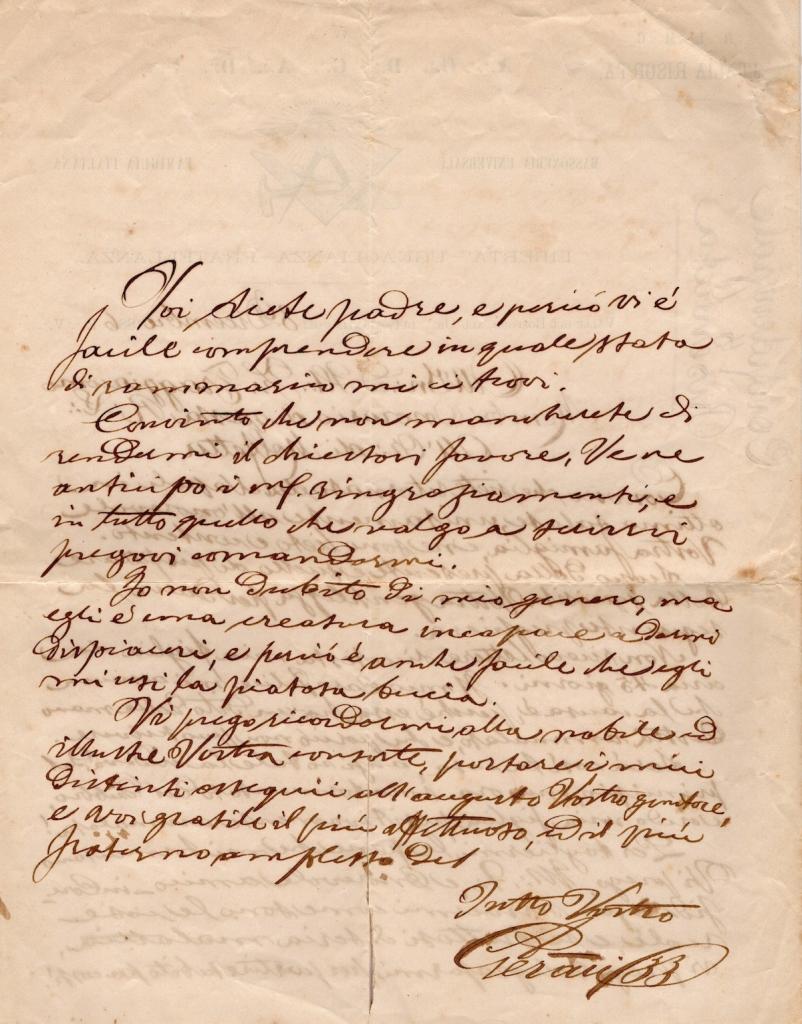 Voi siete padre, e perciò vi è
facile comprendere in quale stato
di rammarico mi ci trovi.
Convinto che non mancherete di
rendermi il chiestovi favore, Ve ne
anticipo i ringraziamenti, e
in tutto quello che valgo a servirvi
pregovi comandarmi.
Io non dubito di mio genero, ma
egli è una creatura incapace a darmi
dispiaceri, e perciò è anche facile che egli
mi usi la pietosa bucia.
Vi prego ricordarmi alla nobile ed
illustre Vostra consorte, portare i miei
distinti ossequii all'augusto Vostro genitore,
e voi gradite il più affettuoso, ed il più
fraterno amplesso del
Tutto Vostro
Geraci 33